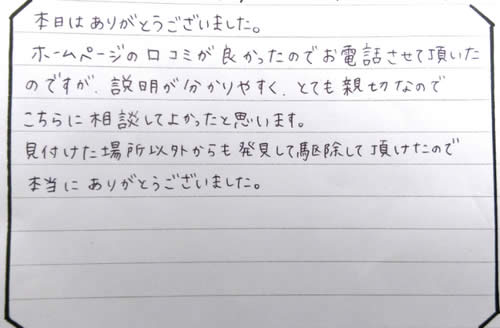 本日はありがとうございました。
ホームページの口コミが良かったのでお電話させて頂いた
のですが、説明が分かりやすく、とても親切なので
こちらに相談してよかったと思います。
見付けた場所以外からも発見して駆除して頂けたので
本当にありがとうございました。